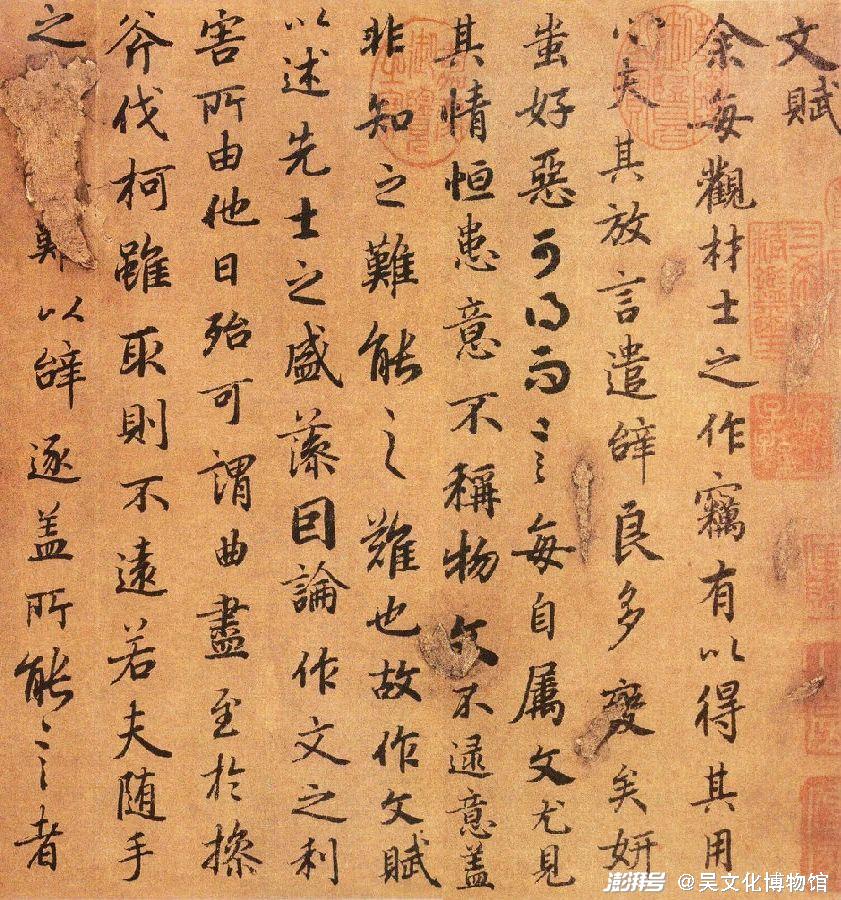 文賦
余每觀材士之作竊有以得其用
心夫其放言遣辭良多變矣妍
蚩好惡可得而言每自属文尤見
其情恒患意不稱物文不逮意盖
非知之難能之難也故作文賦
以述先士之盛藻因論作文之利
害所由他日殆可謂曲盡至於操
斧伐柯雖取則不遠若夫随手
之難以辭逐盖所能言者
澎湃号 @吴文化博物馆